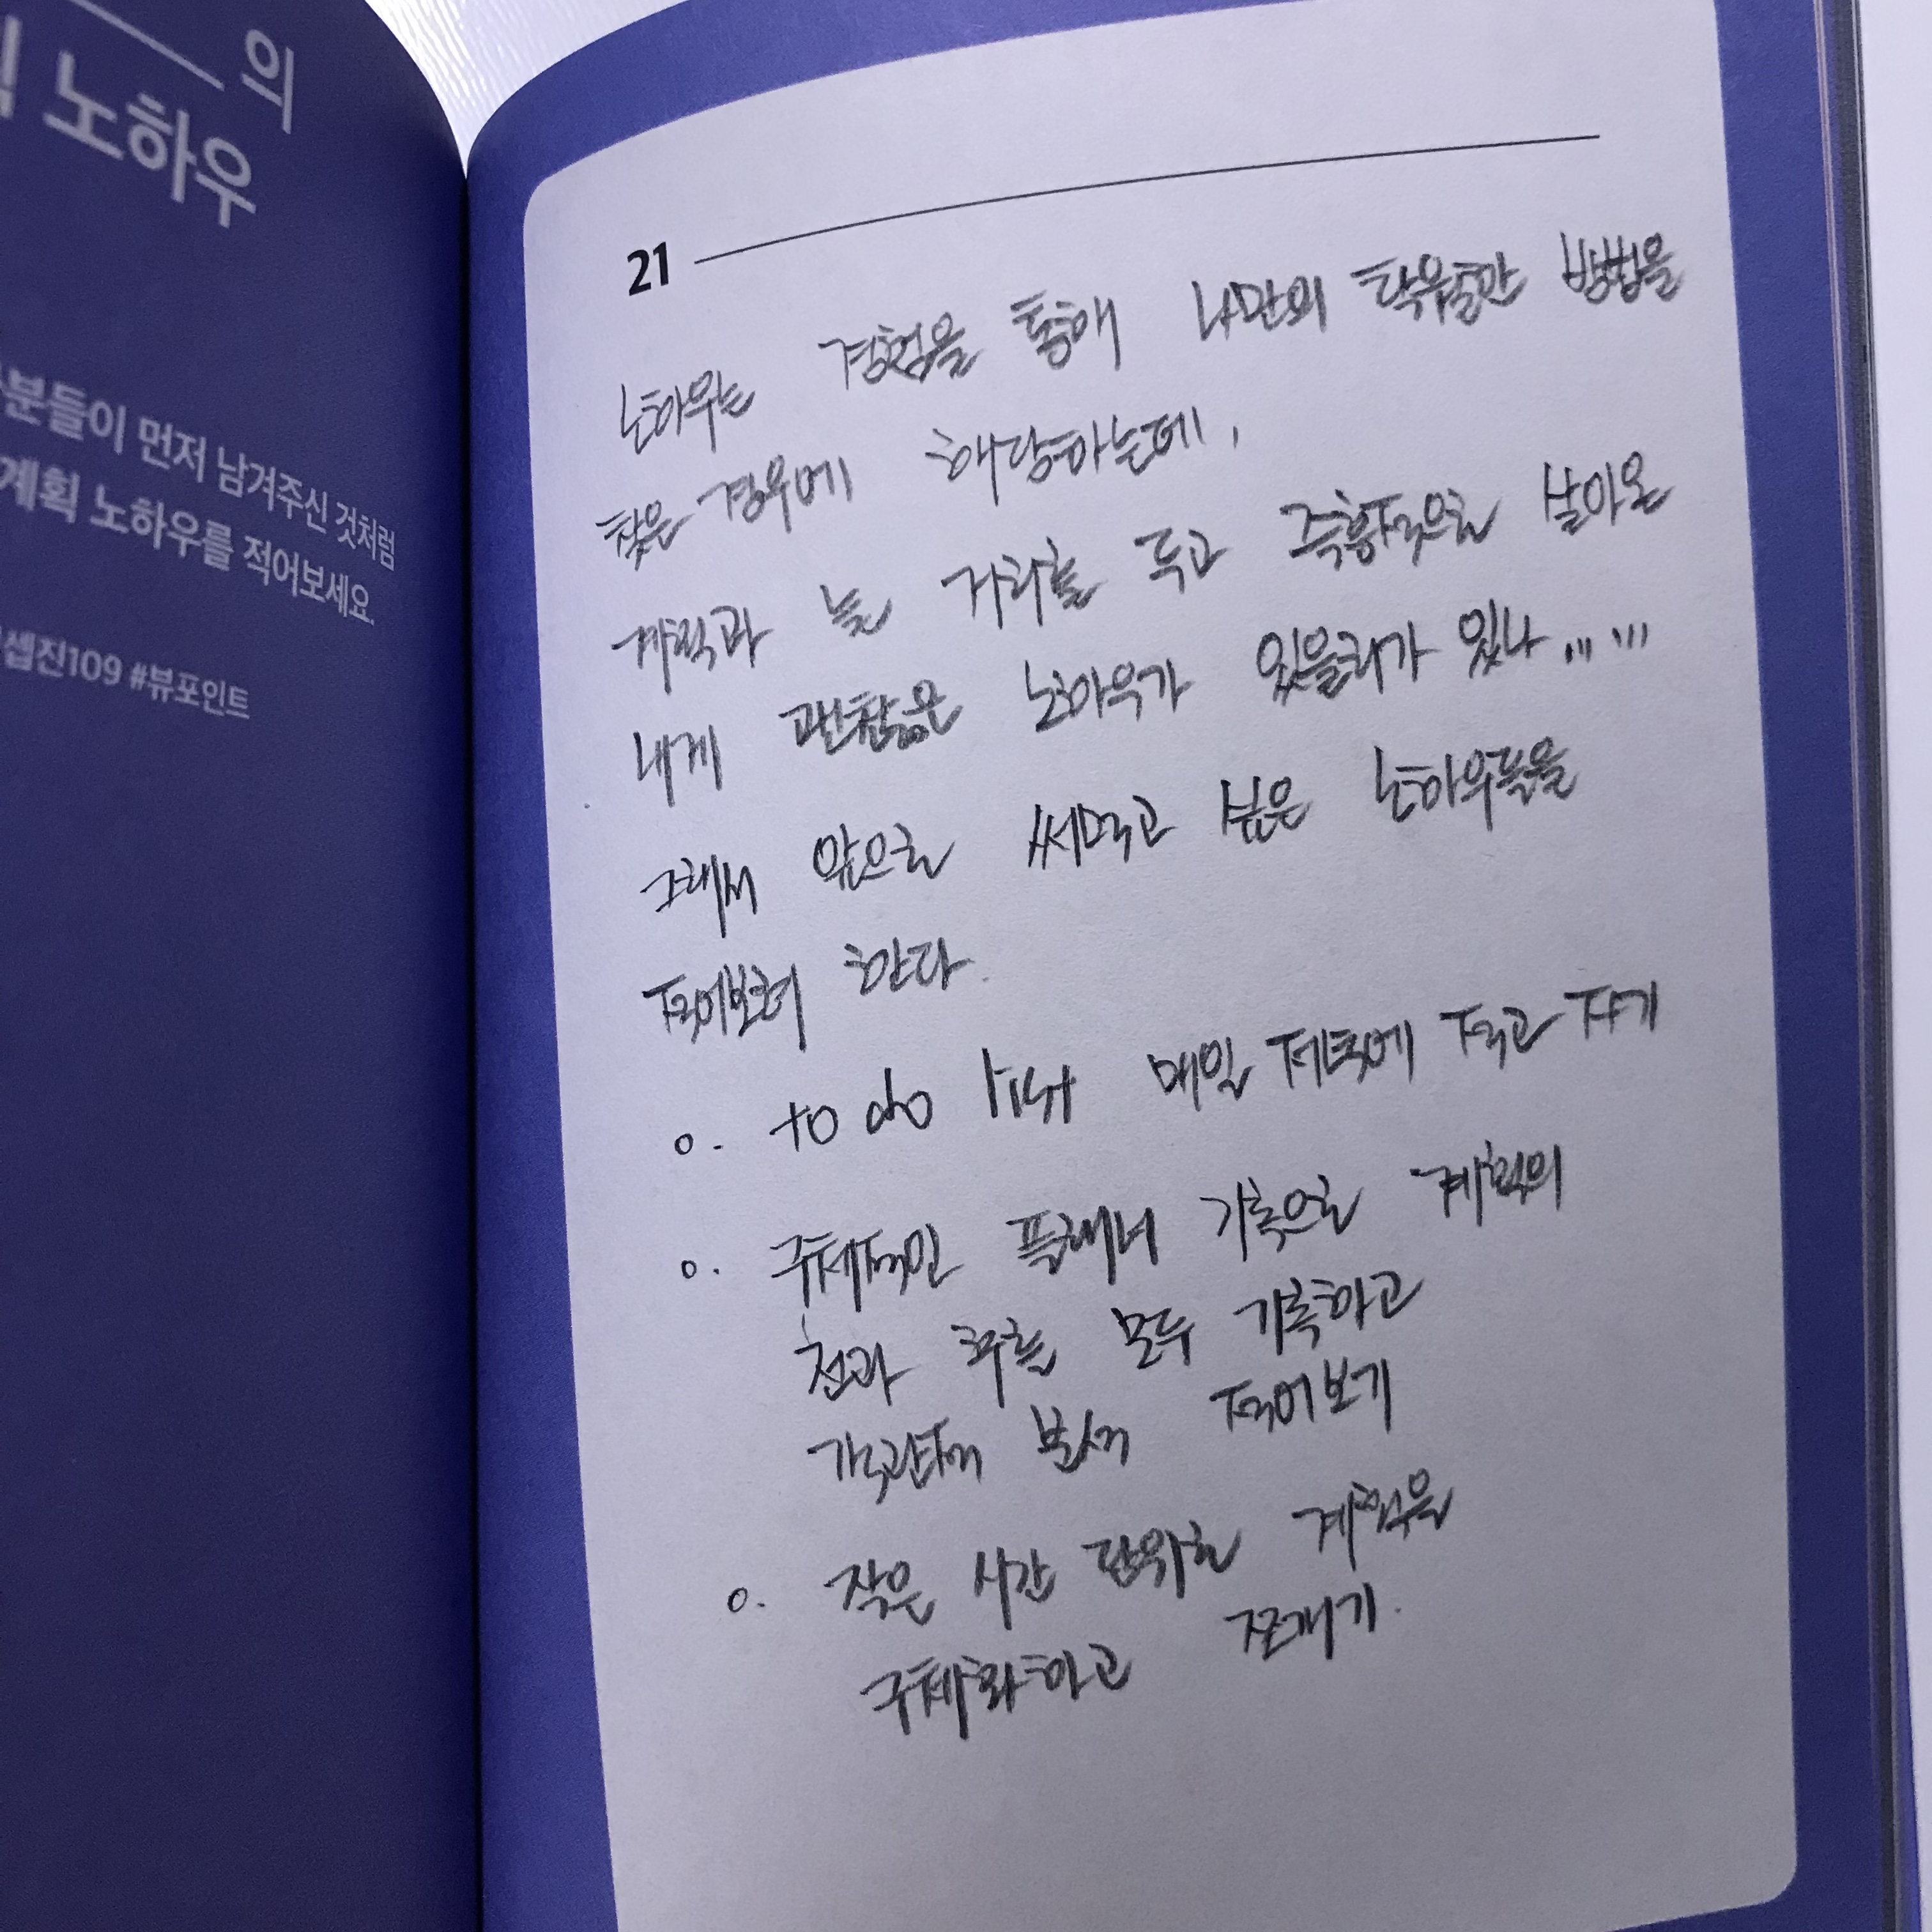 의
노하우
분들이 먼저 남겨주신 것처럼
계획 노하우를 적어보세요.
셉진109 #뷰포인트
21
노하우는 경험을 통해 나만의 탁월한 방법을
찾은 경우에 해당하는데,
계획과 늘 거리를 두고 즉흥적으로 살아온
내게 괜찮은 노하우가 있을리가 있나......
그래서 앞으로 써먹고 싶은 노하우들을
적어보려 한다.
o. to do list 매일 저녁에 적고 자기
o. 구체적인 플래너 기록으로 계획의
전과 후를 모두 기록하고
객관적 분석 적어보기
o. 작은 시간 단위로 계획을
구체화하고 쪼개기.